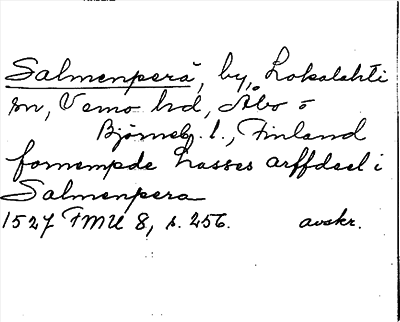 Salmenperä, by, Lokalahti
sn, Vemo hd, Åbo o
Björneb. l., Finland
fornempde Lasses arffdeel i
Salmenpera
1527 FMU 8, s. 256. avskr.